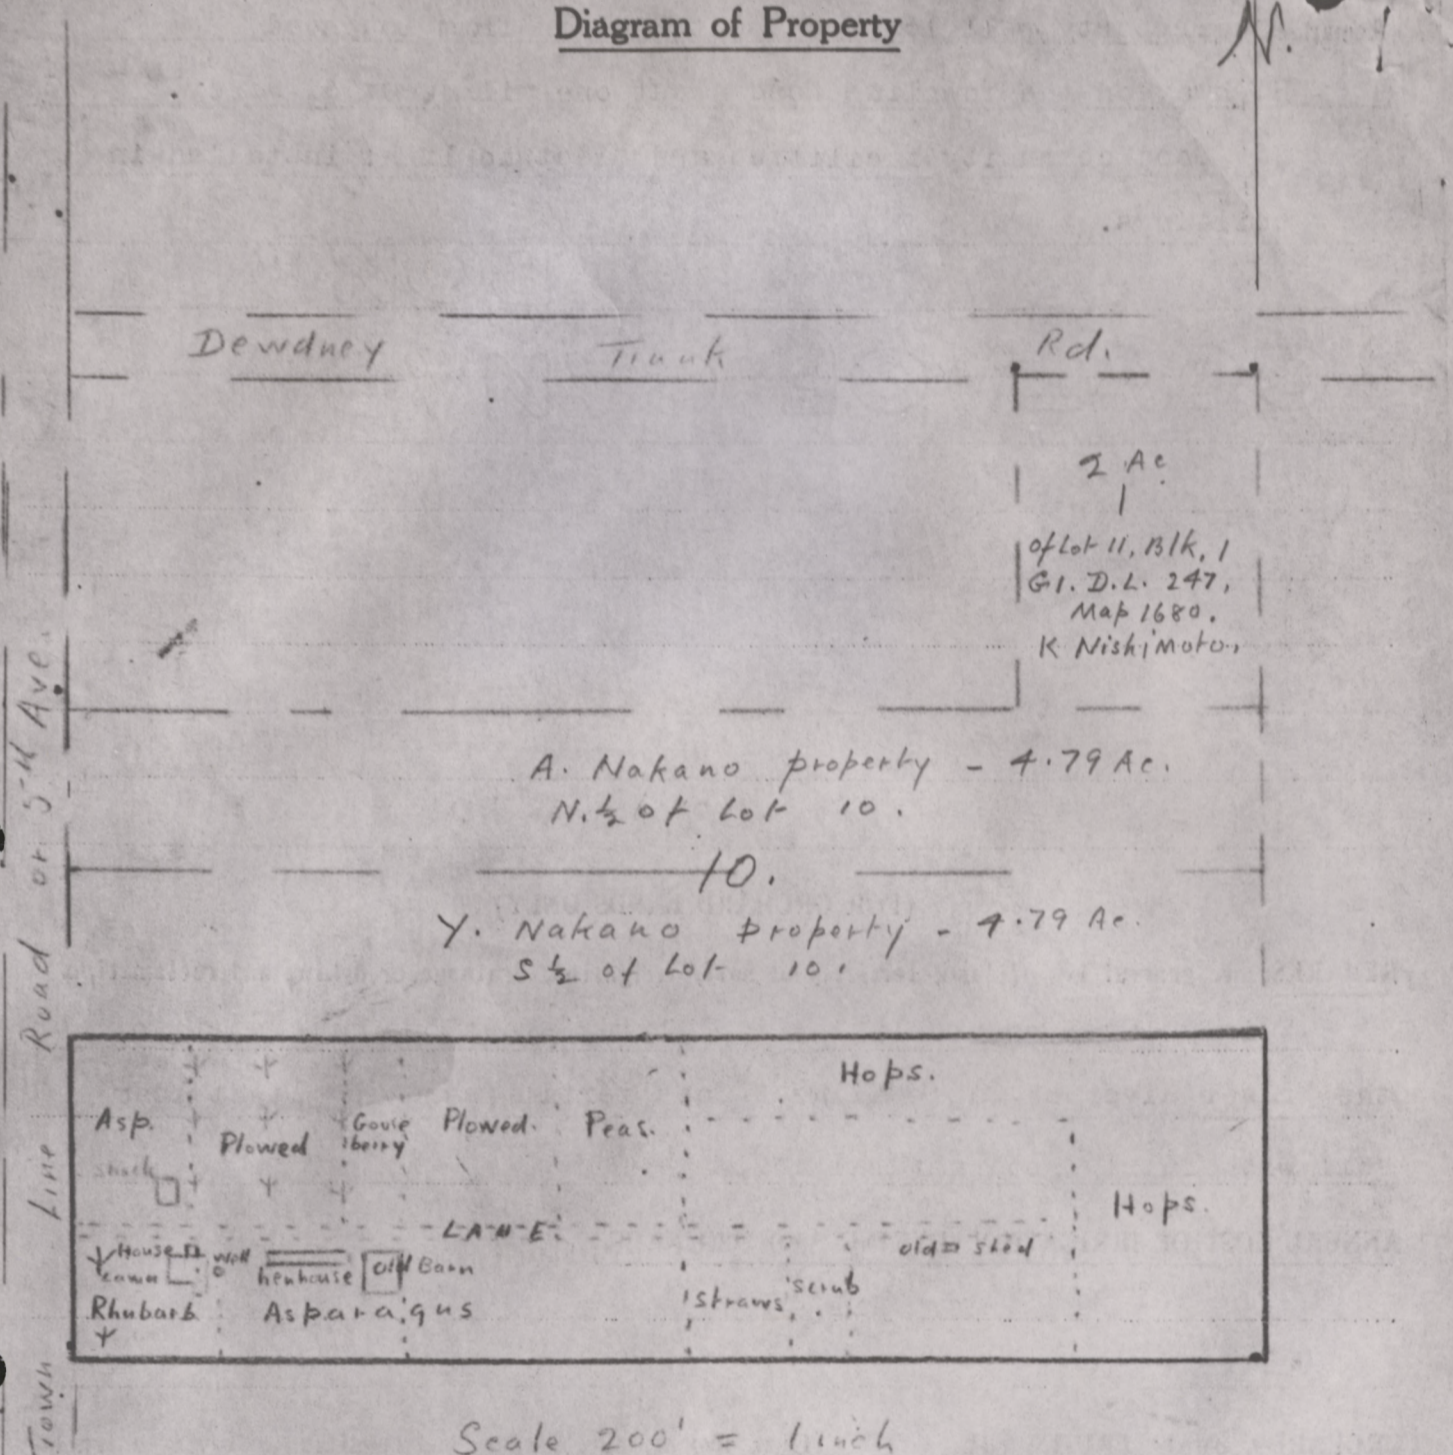 Diagram of Property
N.
Dewdney Trunk Rd.
2 Ac
of Lot 11, Blk, 1
G1. D.L. 247,
Map 1680.
K Nishimoto,
A. Nakano property - 4.79 Ac.
N.½ of Lot 10.
10.
Y. Nakano property - 4.79 Ac.
S ½ of Lot 10.
Town Line Road or 5th Ave.
Hops.
Asp.
Plowed
Goose
berry
Plowed.
Peas.
Shack
Hops.
LANE
House
Well
henhouse
Old Barn
old shed
Lawn
Rhubarb
Asparagus
Straws
Scrub
Scale 200' = 1 inch